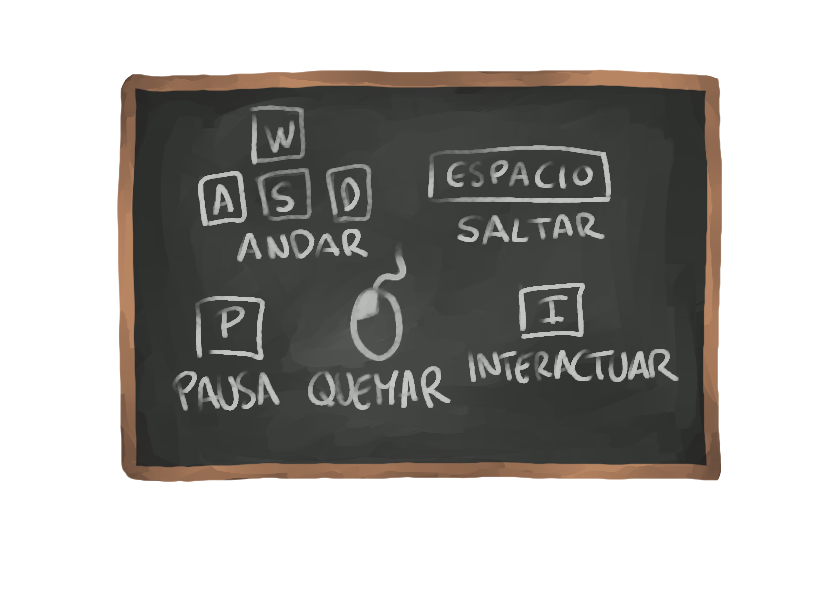 W
A S D
ANDAR
ESPACIO
SALTAR
P
PAUSA
QUEMAR
I
INTERACTUAR